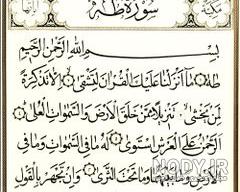 سُورَةُ طه
مكية
بِسْمِ اللَّهِ الرَّحْمَنِ الرَّحِيمِ
طه مَا أَنْزَلْنَا عَلَيْكَ الْقُرْآنَ لِتَشْقَى إِلَّا تَذْكِرَةً
لِمَنْ يَخْشَى تَنْزِيلًا مِمَّنْ خَلَقَ الْأَرْضَ وَالسَّمَوَاتِ الْعُلَى
الرَّحْمَنُ عَلَى الْعَرْشِ اسْتَوَى لَهُ مَا فِي السَّمَوَاتِ وَمَا فِي
الْأَرْضِ وَمَا بَيْنَهُمَا وَمَا تَحْتَ الثَّرَى وَإِنْ تَجْهَرْ بِالْقَوْلِ
NODY.IR